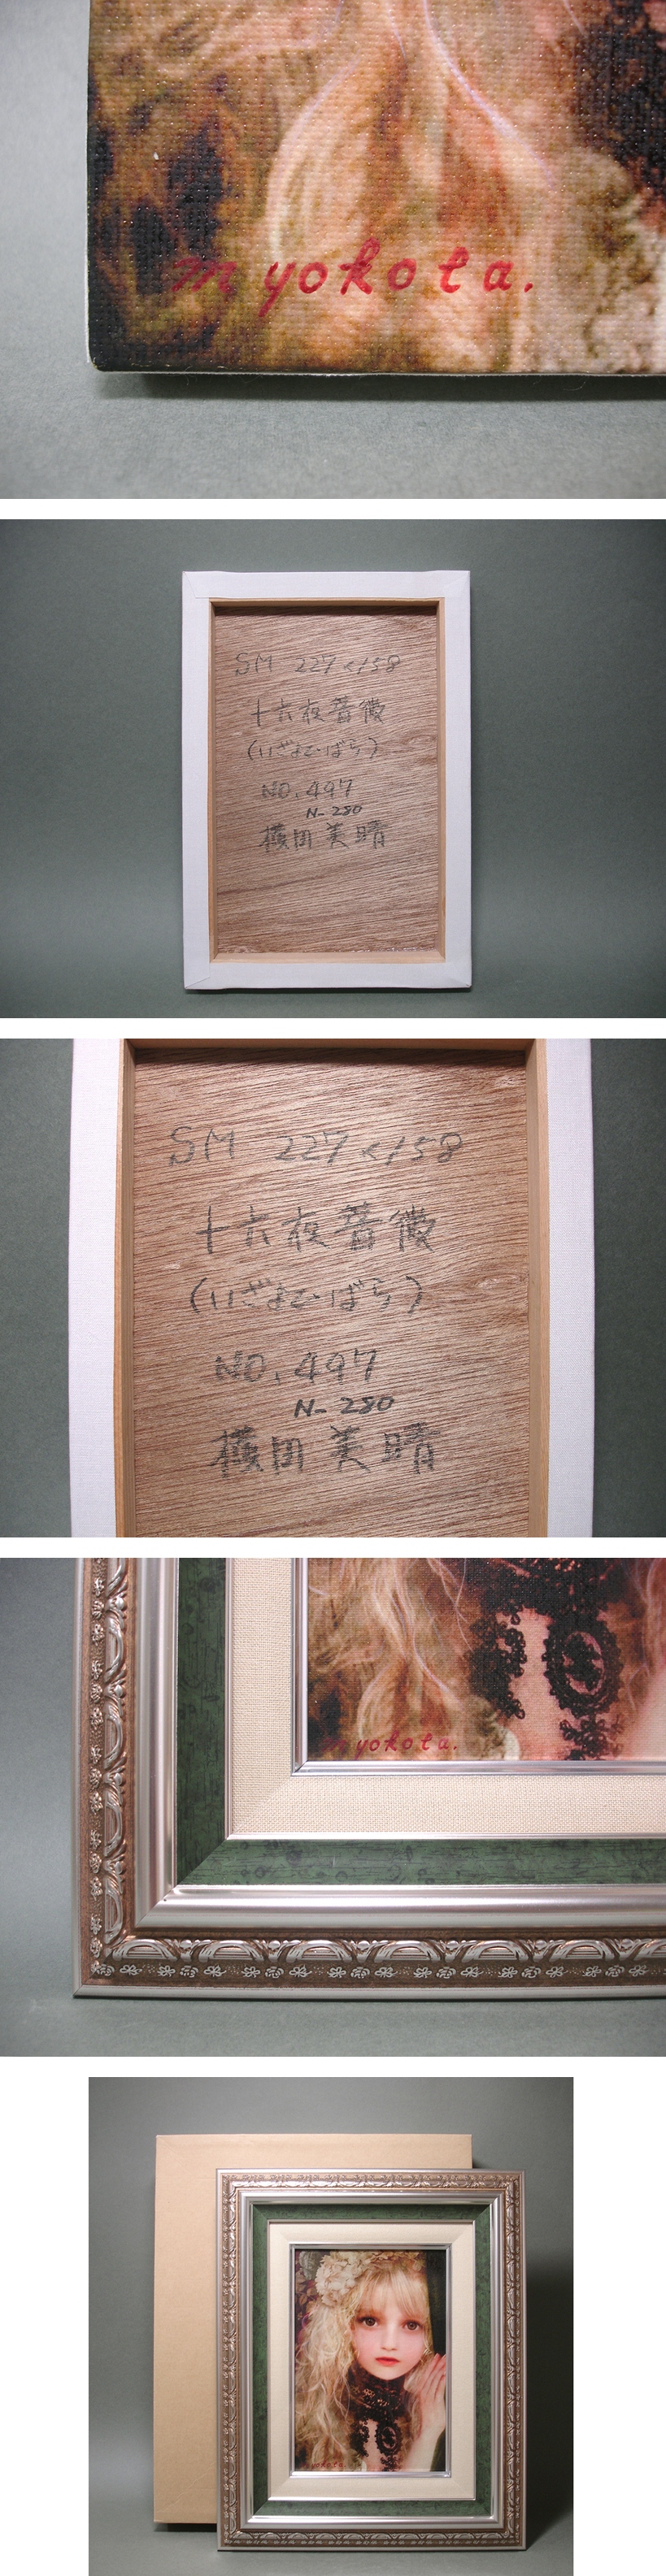 m yokota.
SM 227×158
十六夜薔薇
(いざよいばら)
NO. 497
N- 280
横田美晴
SM 227×158
十六夜薔薇
(いざよいばら)
NO. 497
N- 280
横田美晴
m yokota.